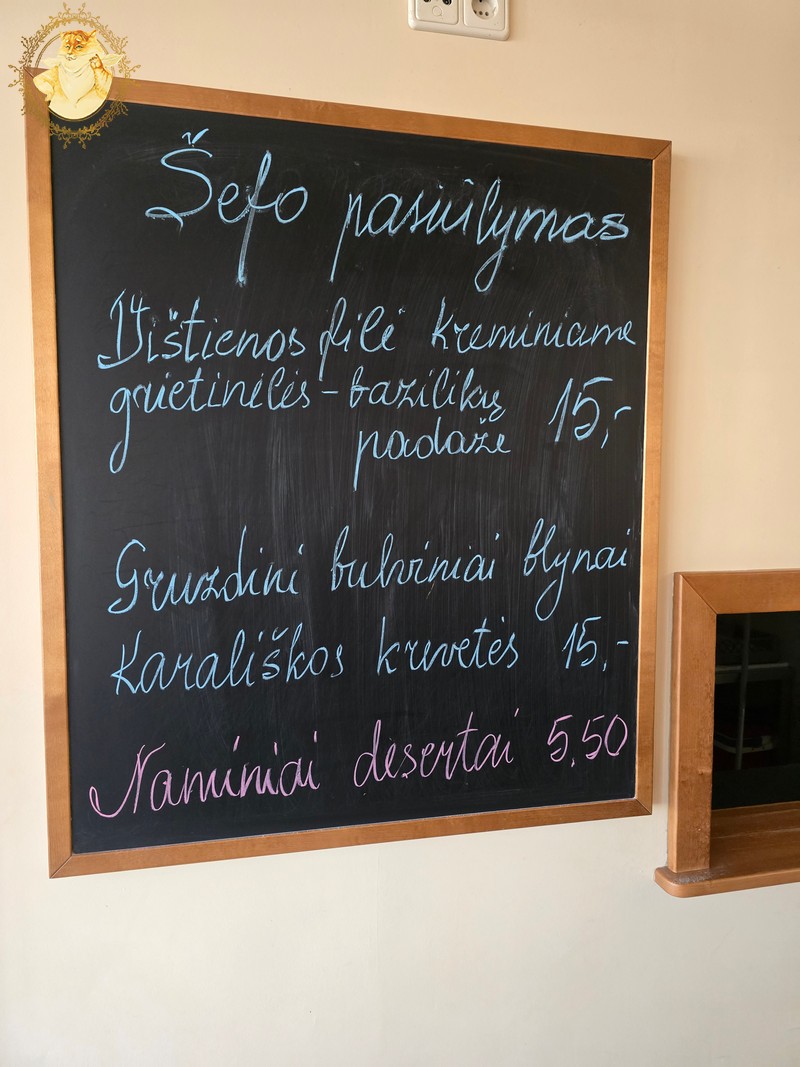 Šefo pasiūlymas
Vištienos filė kreminiame
grietinėlės - bazilikų 15,-
padaže
Gruzdini bulviniai blynai
Karališkos krevetės 15,-
Naminiai desertai 5,50